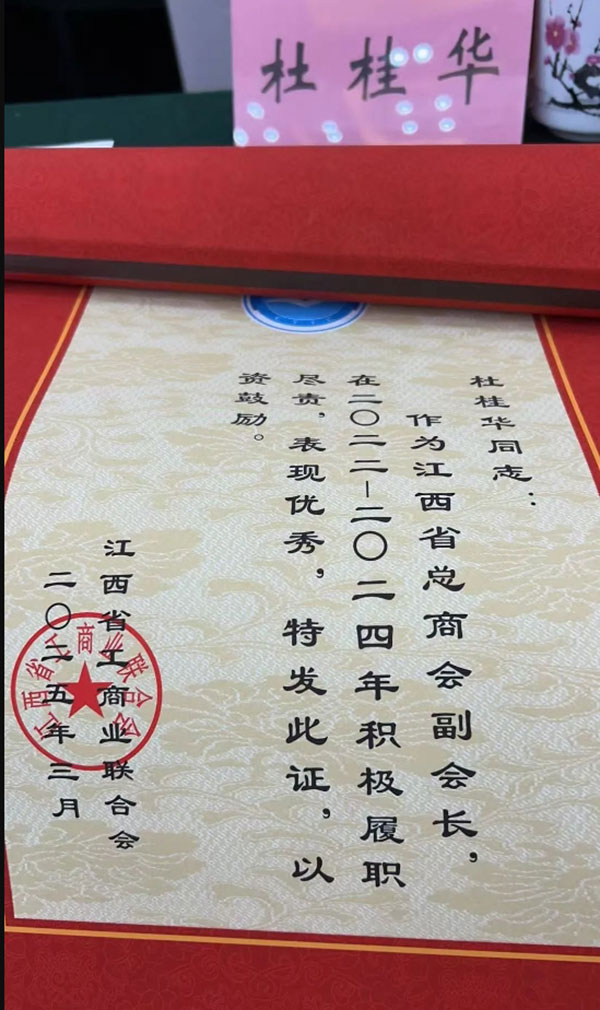 杜桂华
杜桂华同志：
作为江西省总商会副会长，
在二〇二二-二〇二四年积极履职
尽责，表现优秀，特发此证，以
资鼓励。
江西省工商业联合会
二〇二五年三月
江西省工商业联合会